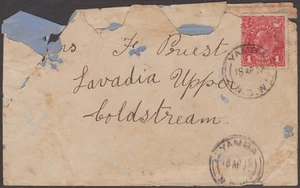 Mrs F. Priest
Lavadia Uppe
Coldstream.
1 1
YAMBA
18 AP
N.S.W
YAMBA
18 AP 19